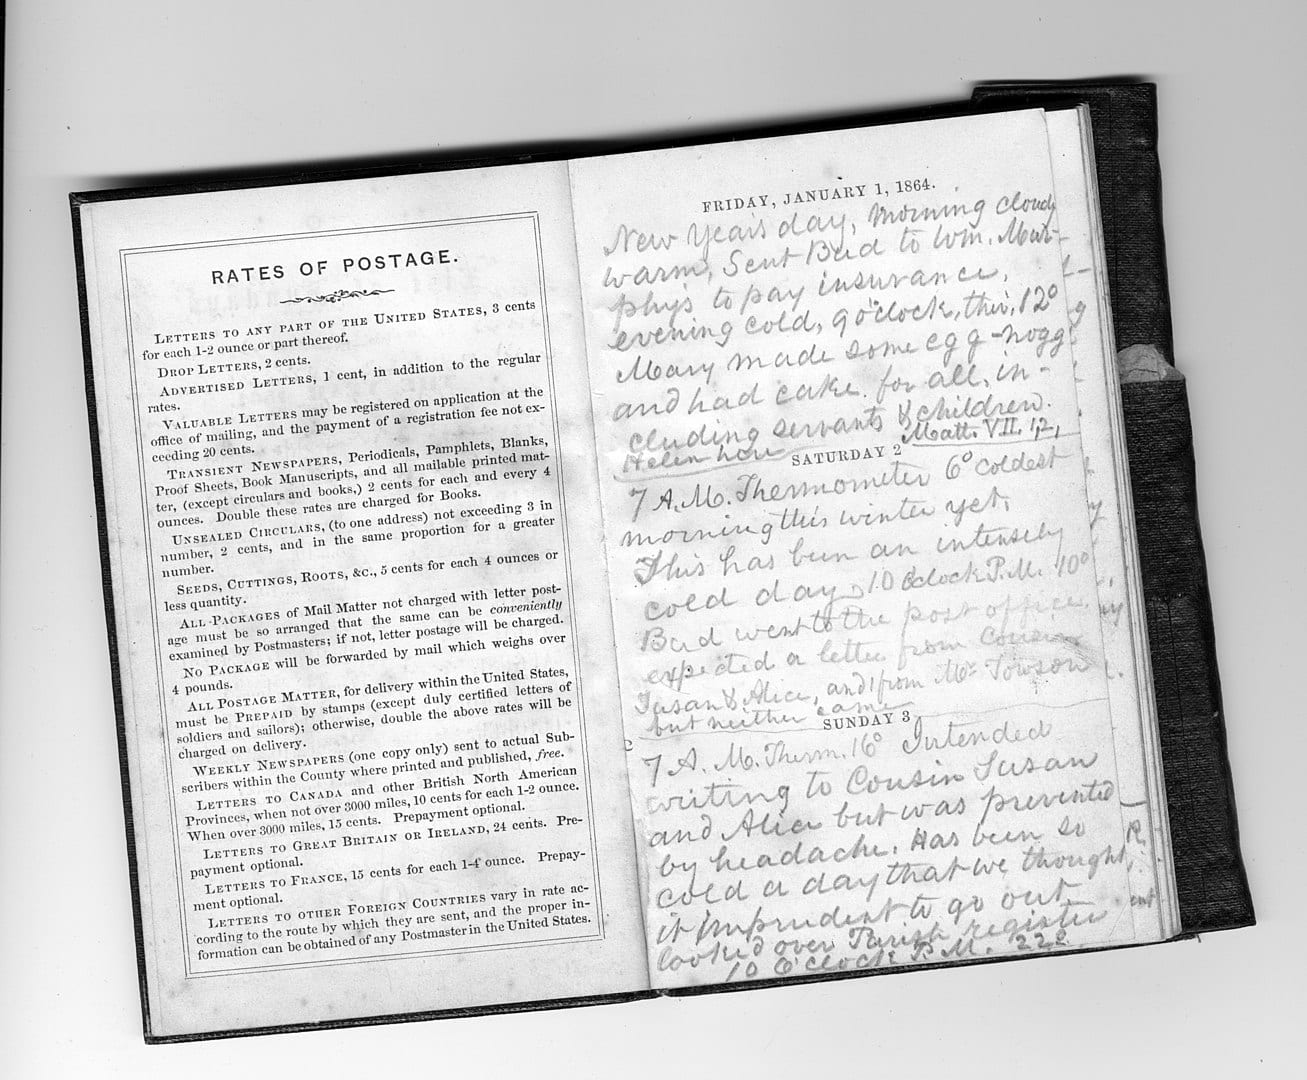 RATES OF POSTAGE.
LETTERS TO ANY PART OF THE UNITED STATES, 3 cents
for each 1-2 ounce or part thereof.
DROP LETTERS, 2 cents.
ADVERTISED LETTERS, 1 cent, in addition to the regular
rates.
VALUABLE LETTERS may be registered on application at the
office of mailing, and the payment of a registration fee not ex-
ceeding 20 cents.
TRANSIENT NEWSPAPERS, Periodicals, Pamphlets, Blanks,
Proof Sheets, Book Manuscripts, and all mailable printed mat-
ter, (except circulars and books,) 2 cents for each and every 4
ounces. Double these rates are charged for Books.
UNSEALED CIRCULARS, (to one address) not exceeding 3 in
number, 2 cents, and in the same proportion for a greater
number.
SEEDS, CUTTINGS, ROOTS, &C., 5 cents for each 4 ounces or
less quantity.
ALL PACKAGES of Mail Matter not charged with letter post-
age must be so arranged that the same can be conveniently
examined by Postmasters; if not, letter postage will be charged.
NO PACKAGE will be forwarded by mail which weighs over
4 pounds.
ALL POSTAGE MATTER, for delivery within the United States,
must be PREPAID by stamps (except duly certified letters of
soldiers and sailors); otherwise, double the above rates will be
charged on delivery.
WEEKLY NEWSPAPERS (one copy only) sent to actual Sub-
scribers within the County where printed and published, free.
LETTERS TO CANADA and other British North American
Provinces, when not over 3000 miles, 10 cents for each 1-2 ounce.
When over 3000 miles, 15 cents. Prepayment optional.
LETTERS TO GREAT BRITAIN OR IRELAND, 24 cents. Pre-
payment optional.
LETTERS TO FRANCE, 15 cents for each 1-4 ounce. Prepay-
ment optional.
LETTERS TO OTHER FOREIGN COUNTRIES vary in rate ac-
cording to the route by which they are sent, and the proper in-
formation can be obtained of any Postmaster in the United States.
FRIDAY, JANUARY 1, 1864.
New Year's day, Morning cloudy
warm, Sent Bud to Wm. Mur-
phy's to pay insurance,
evening cold, 9 o'clock, ther, 12°
Mary made some egg-nogg
and had cake for all, in-
cluding servants & children.
Helen Matt. VII. 12,
SATURDAY 2
7 A.M. Thermometer 6° coldest
morning this winter yet,
This has been an intensely
cold day, 10 o'clock P.M. 10°
Bud went to the post office
expected a letter from Cousin
Susan & Alice, and from Mr Towson
but neither came
SUNDAY 3
7 A. M. Therm. 16° Intended
writing to Cousin Susan
and Alice but was prevented
by headache. Has been so
cold a day that we thought
it imprudent to go out
looked over Parish register
10 o'clock P. M. 22°